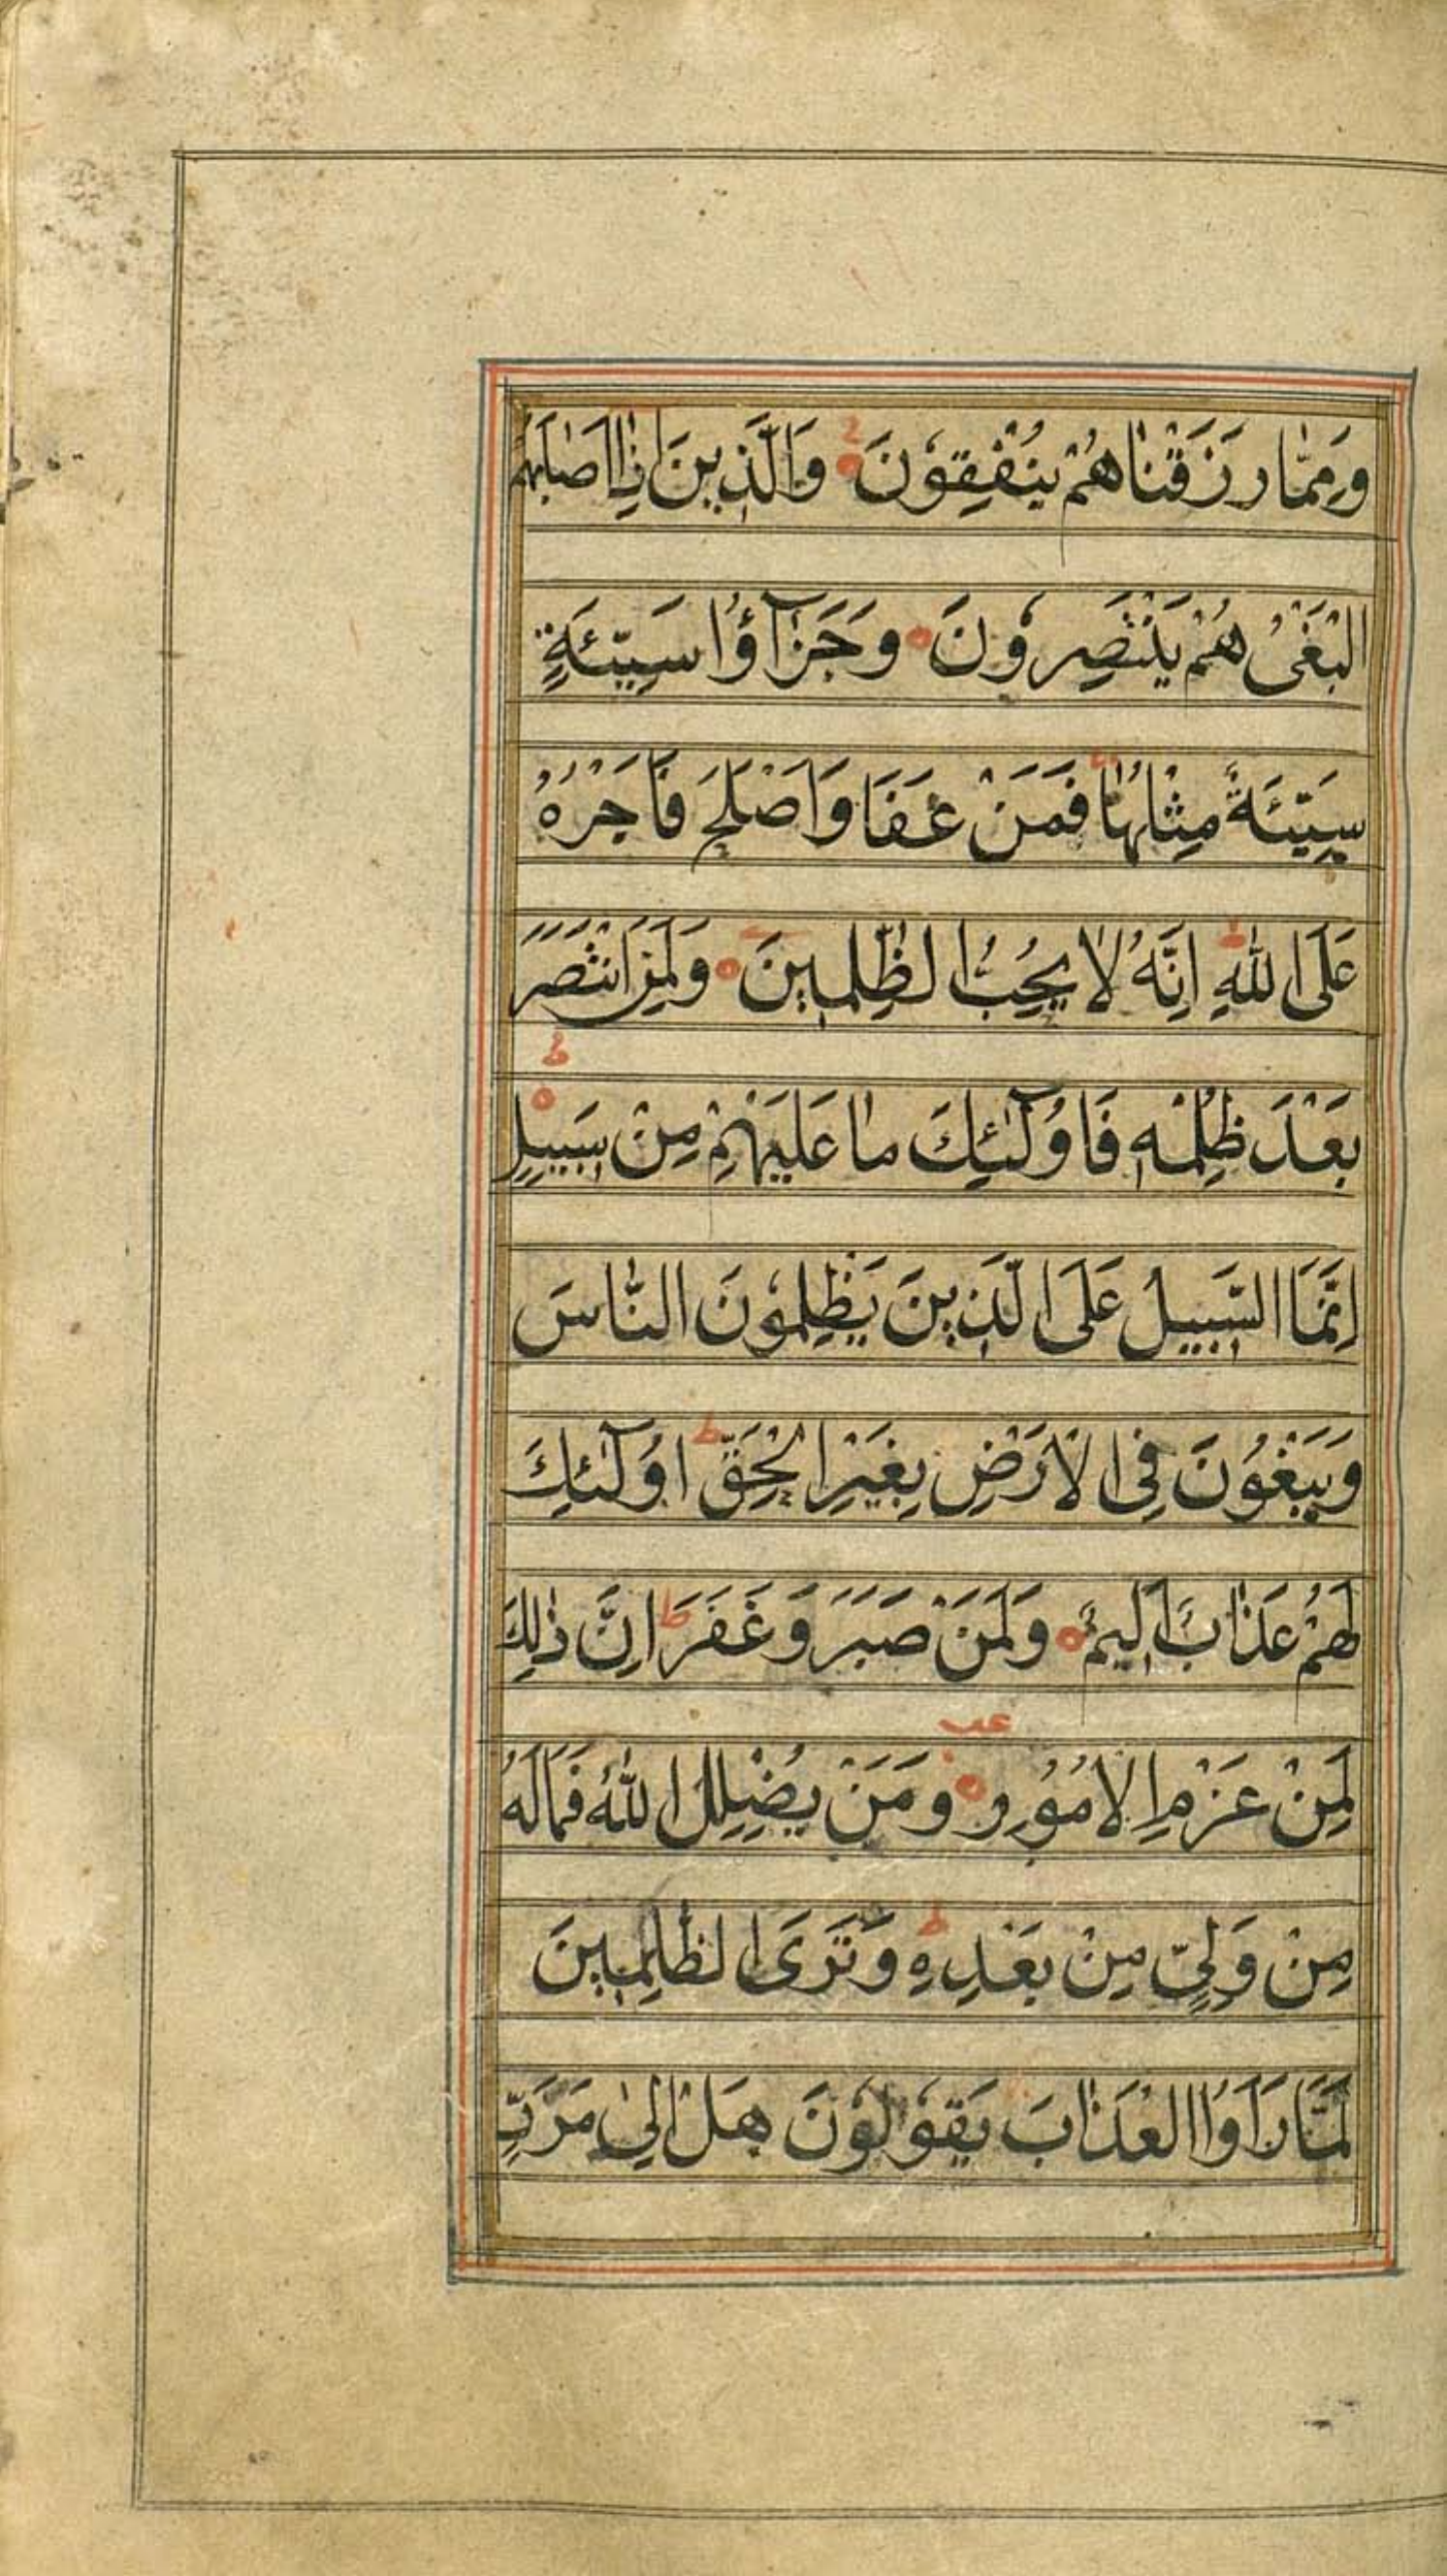 وَمِمَّا رَزَقْنَاهُمْ يُنْفِقُونَ وَالَّذِينَ اِذَا اَصَابَهُمُ
الْبَغْىُ هُمْ يَنْتَصِرُونَ وَجَزٰٓؤُا سَيِّئَةٍ
سَيِّئَةٌ مِثْلُهَا فَمَنْ عَفَا وَاَصْلَحَ فَاَجْرُهُ
عَلَى اللّٰهِ اِنَّهُ لَا يُحِبُّ الظّٰلِمِينَ وَلَمَنِ انْتَصَرَ
بَعْدَ ظُلْمِهِ فَاُولٰٓئِكَ مَا عَلَيْهِمْ مِنْ سَبِيلٍ
اِنَّمَا السَّبِيلُ عَلَى الَّذِينَ يَظْلِمُونَ النَّاسَ
وَيَبْغُونَ فِى الْاَرْضِ بِغَيْرِ الْحَقِّ اُولٰٓئِكَ
لَهُمْ عَذَابٌ اَلِيمٌ وَلَمَنْ صَبَرَ وَغَفَرَ اِنَّ ذٰلِكَ
لَمِنْ عَزْمِ الْاُمُورِ وَمَنْ يُضْلِلِ اللّٰهُ فَمَا لَهُ
مِنْ وَلِىٍّ مِنْ بَعْدِهِ وَتَرَى الظّٰلِمِينَ
لَمَّا رَاَوُا الْعَذَابَ يَقُولُونَ هَلْ اِلٰى مَرَدٍّ